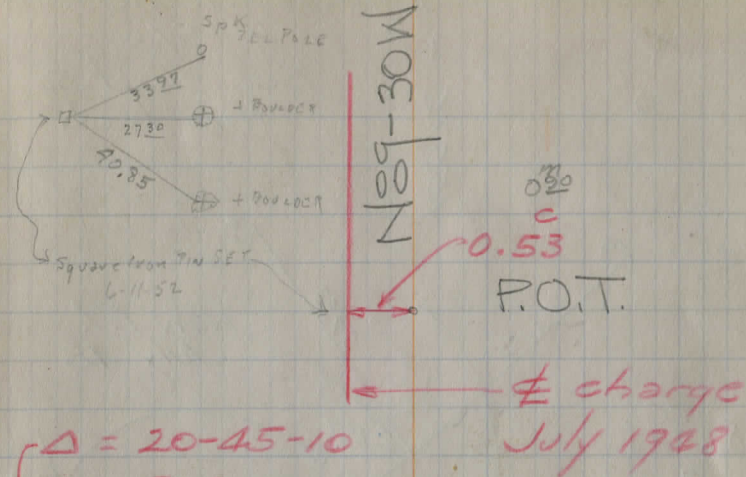 Spk
TEL POLE
33 97
+ BOULDER
27 30
40.85
+ BOULDER
Square Iron Pin SET
6-11-52
N09-30W
0.53
P.O.T.
℄ change
July 1928
Δ = 20-45-10